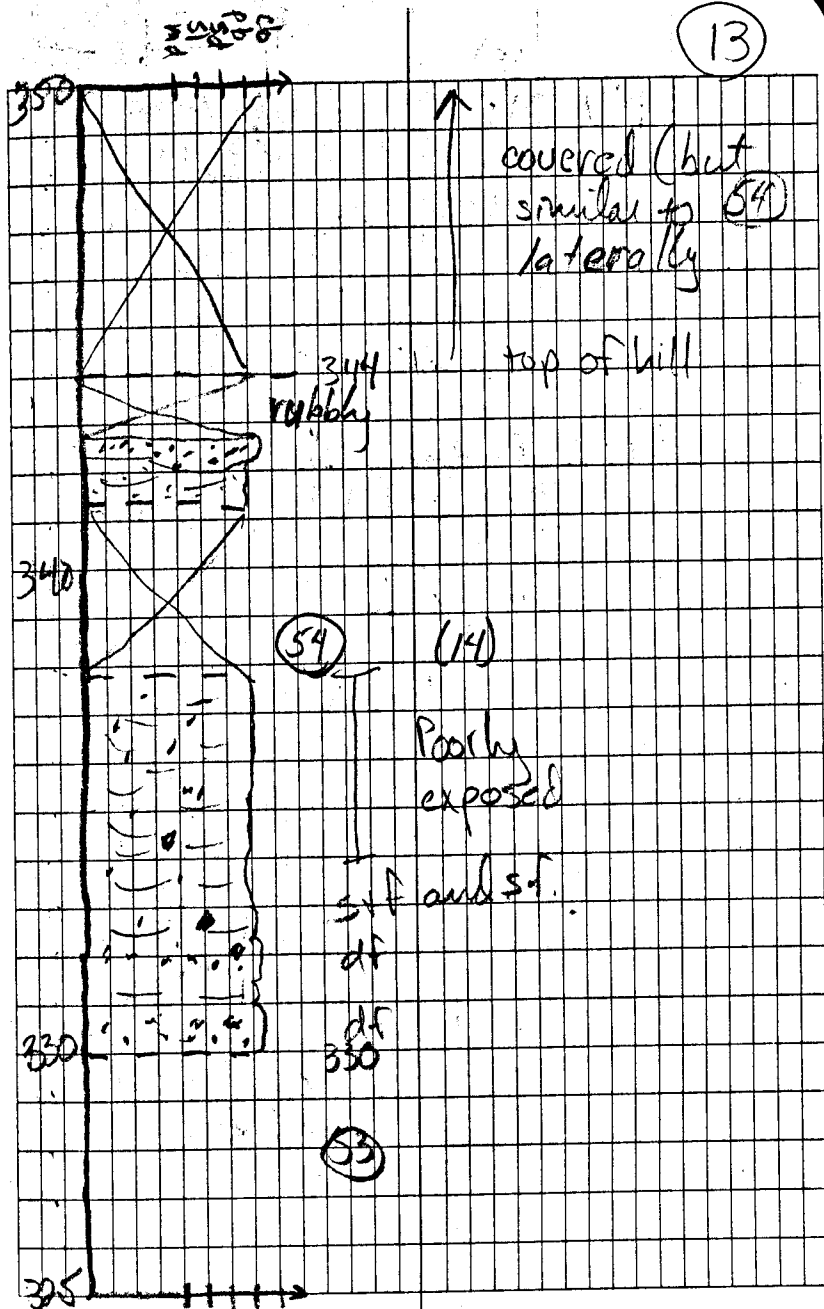 13
350
covered (but
similar to 54
laterally
344
top of hill
rubbly
340
54 (14)
Poorly
exposed
and sf.
df
df
330
330
53
325